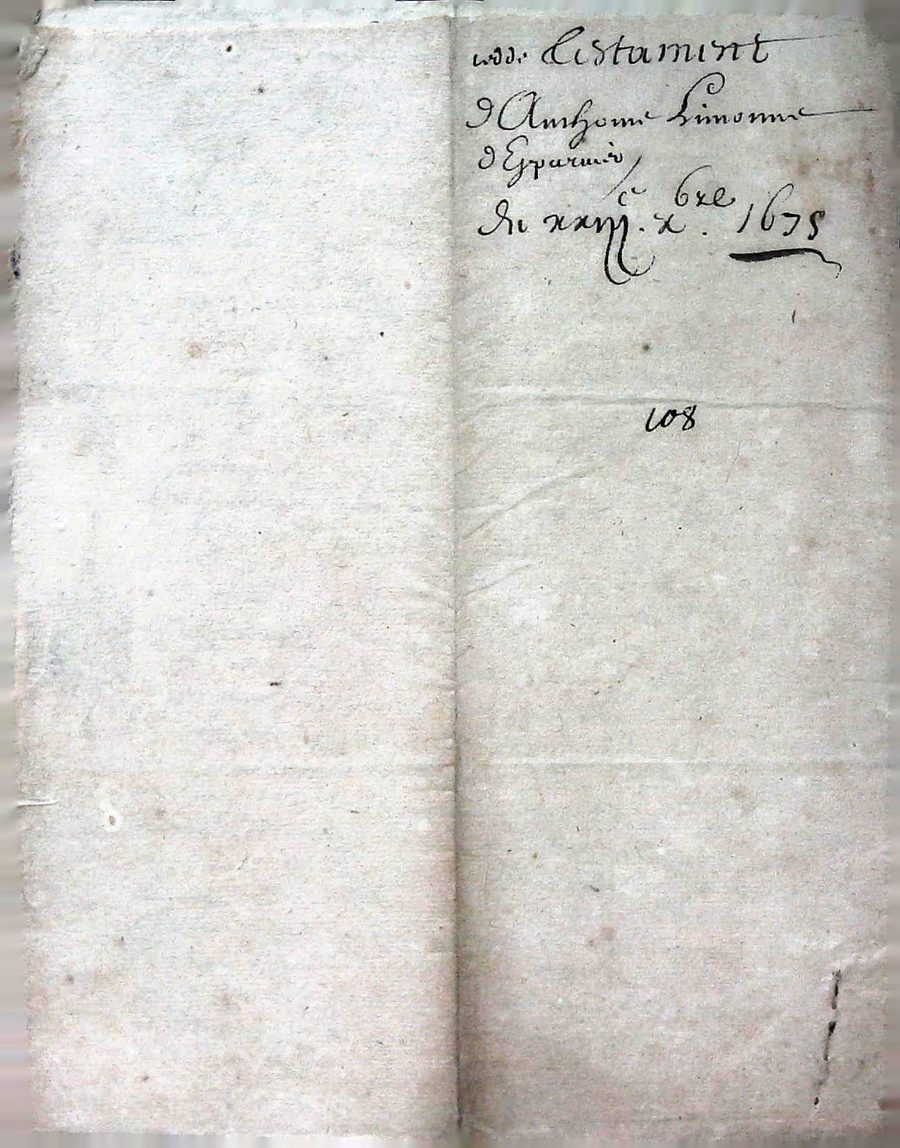 Testament
d'Anthoine Limonne
d'Esparnis
du xxiij.e x.bre 1675
108